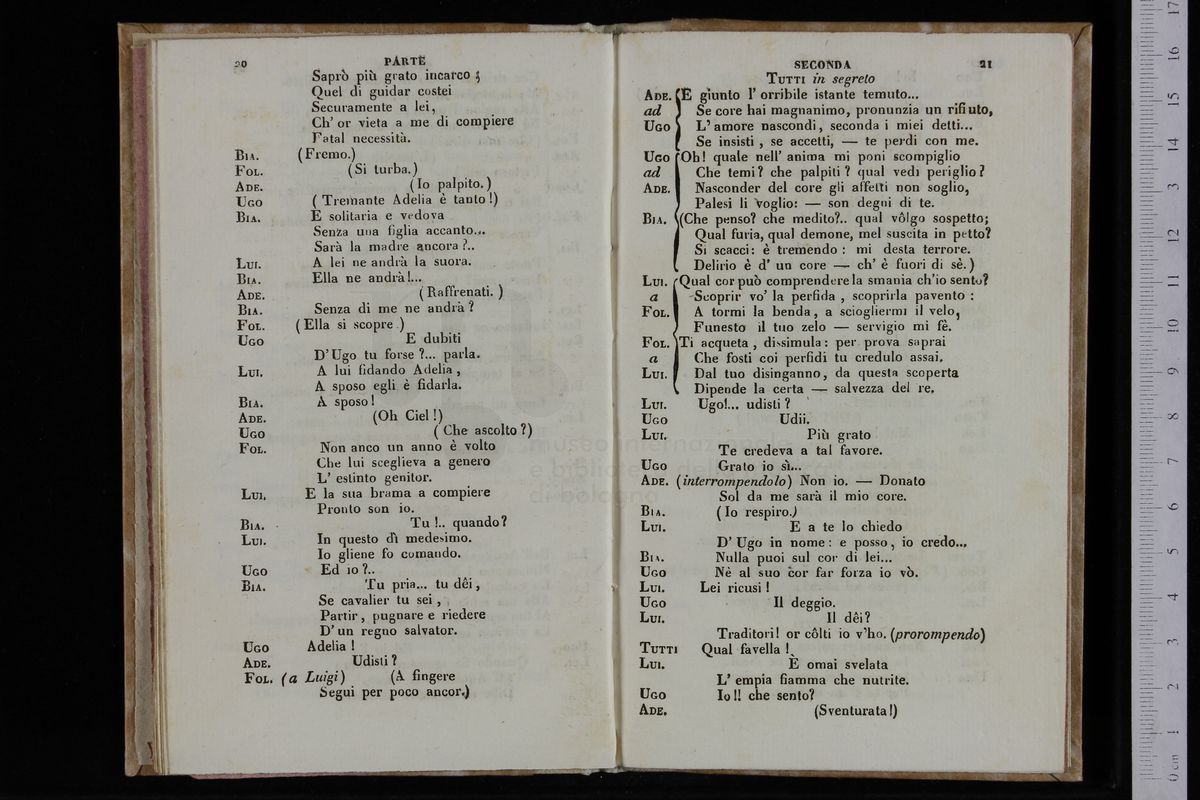 20 PARTE
Saprò più grato incarco ;
Quel di guidar costei
Securamente a lei,
Ch' or vieta a me di compiere
Fatal necessità.
BIA. (Fremo.)
FOL. (Si turba.)
ADE. (Io palpito.)
UGO (Tremante Adelia è tanto!)
BIA. E solitaria e vedova
Senza una figlia accanto...
Sarà la madre ancora?..
LUI. A lei ne andrà la suora.
BIA. Ella ne andrà!...
ADE. (Raffrenati.)
BIA. Senza di me ne andrà?
FOL. (Ella si scopre.)
UGO E dubiti
D'Ugo tu forse?... parla.
LUI. A lui fidando Adelia,
A sposo egli è fidarla.
BIA. A sposo!
ADE. (Oh Ciel!)
UGO (Che ascolto?)
FOL. Non anco un anno è volto
Che lui sceglieva a genero
L' estinto genitor.
LUI. E la sua brama a compiere
Pronto son io.
BIA. Tu!.. quando?
LUI. In questo dì medesimo.
Io gliene fo comando.
UGO Ed io?..
BIA. Tu pria... tu dêi,
Se cavalier tu sei,
Partir, pugnare e riedere
D'un regno salvator.
UGO Adelia!
ADE. Udisti?
FOL. (a Luigi) (A fingere
Segui per poco ancor.)
SECONDA 21
TUTTI in segreto
ADE. È giunto l' orribile istante temuto...
ad Se core hai magnanimo, pronunzia un rifiuto,
UGO L' amore nascondi, seconda i miei detti...
Se insisti, se accetti, — te perdi con me.
UGO Oh! quale nell' anima mi poni scompiglio
ad Che temi? che palpiti? qual vedi periglio?
ADE. Nasconder del core gli affetti non soglio,
Palesi li voglio: — son degni di te.
BIA. (Che penso? che medito?.. qual vôlgo sospetto;
Qual furia, qual demone, mel suscita in petto?
Si scacci: è tremendo: mi desta terrore.
Delirio è d' un core — ch' è fuori di sè.)
LUI. Qual cor può comprendere la smania ch'io sento?
a Scoprir vo' la perfida, scoprirla pavento:
FOL. A tormi la benda, a sciogliermi il velo,
Funesto il tuo zelo — servigio mi fê.
FOL. Ti acqueta, dissimula: per prova saprai
a Che fosti coi perfidi tu credulo assai.
LUI. Dal tuo disinganno, da questa scoperta
Dipende la certa — salvezza del re.
LUI. Ugo!... udisti?
UGO Udii.
LUI. Più grato
Te credeva a tal favore.
UGO Grato io sì...
ADE. (interrompendolo) Non io. — Donato
Sol da me sarà il mio core.
BIA. (Io respiro.)
LUI. E a te lo chiedo
D' Ugo in nome: e posso, io credo...
BIA. Nulla puoi sul cor di lei...
UGO Nè al suo cor far forza io vò.
LUI. Lei ricusi!
UGO Il deggio.
LUI. Il dêi?
Traditori! or côlti io v'ho. (prorompendo)
TUTTI Qual favella!
LUI. È omai svelata
L' empia fiamma che nutrite.
UGO Io!! che sento?
ADE. (Sventurata!)
museo internazionale
e biblioteca della musica
di bologna